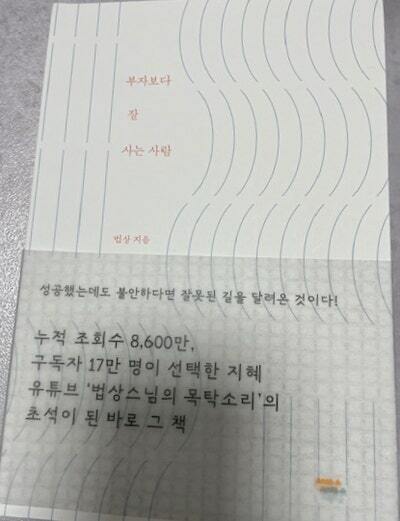 부자보다
잘
사는 사람
법상 지음
성공했는데도 불안하다면 잘못된 길을 달려온 것이다!
누적 조회수 8,600만,
구독자 17만 명이 선택한 지혜
유튜브 '법상스님의 목탁소리'의
초석이 된 바로 그 책